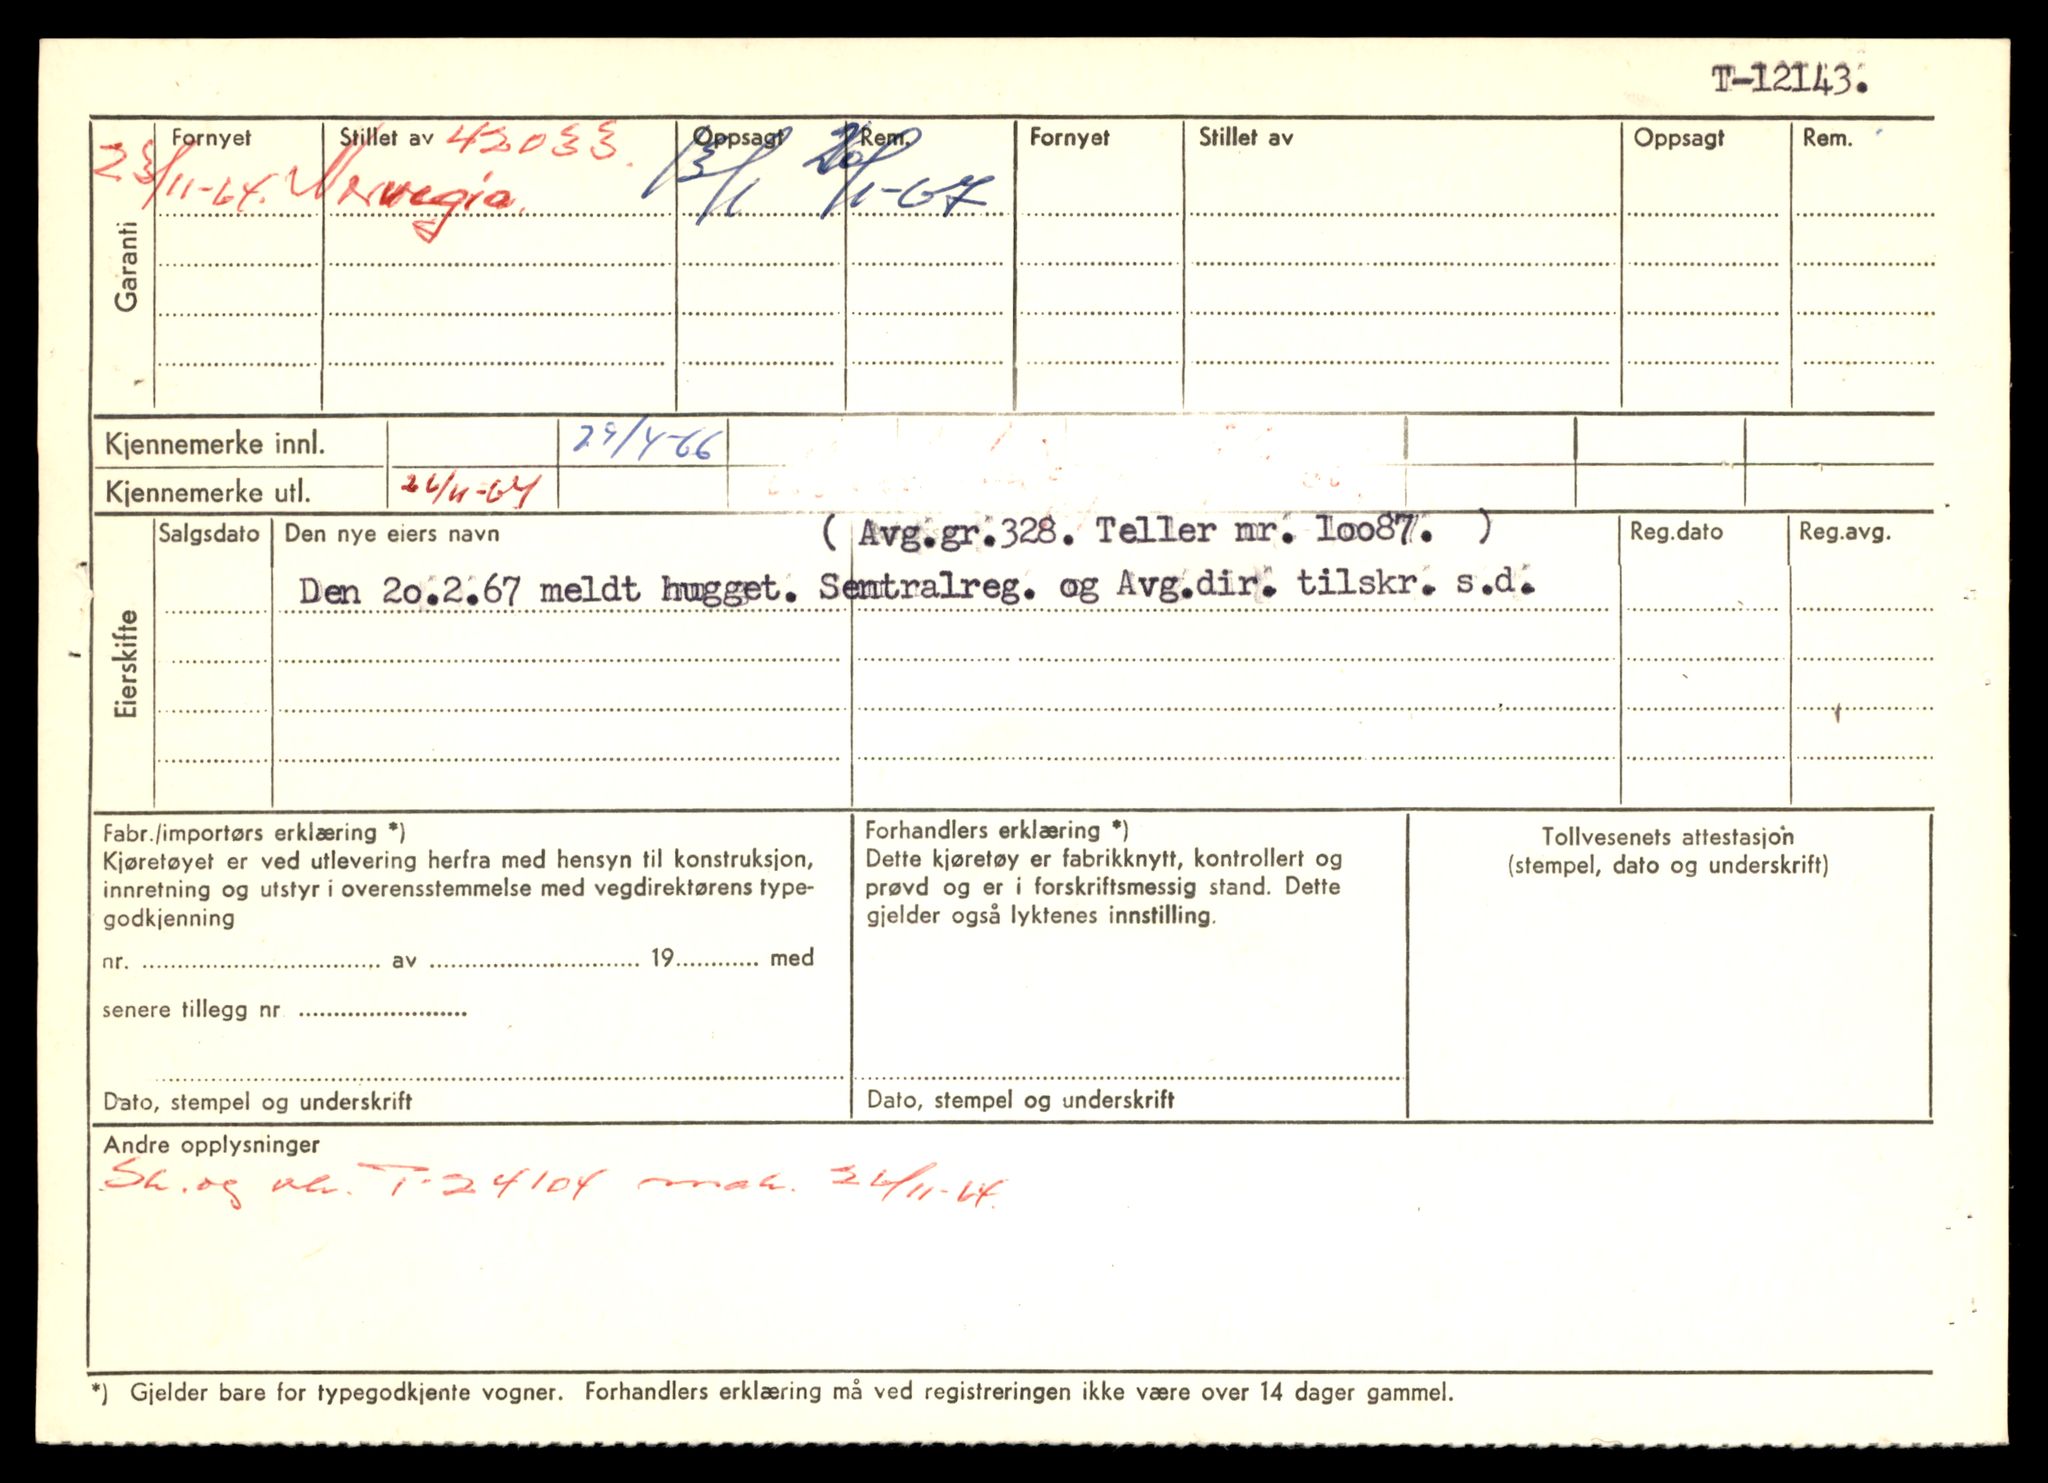 T-12143.
Fornyet Stillet av 42033. Oppsagt Rem. Fornyet Stillet av Oppsagt Rem.
23/11-64. Norvegia. 13/1 20/1-67
Garanti
Kjennemerke innl. 29/4-66
Kjennemerke utl. 26/11-64
Salgsdato Den nye eiers navn ( Avg.gr.328. Teller nr. 1oo87. ) Reg.dato Reg.avg.
Den 2o.2.67 meldt hugget. Sentralreg. og Avg.dir. tilskr. s.d.
Eierskifte
Fabr./importørs erklæring *)
Kjøretøyet er ved utlevering herfra med hensyn til konstruksjon,
innretning og utstyr i overensstemmelse med vegdirektørens type-
godkjenning
nr. av 19 med
senere tillegg nr
Dato, stempel og underskrift
Forhandlers erklæring *)
Dette kjøretøy er fabrikknytt, kontrollert og
prøvd og er i forskriftsmessig stand. Dette
gjelder også lyktenes innstilling.
Dato, stempel og underskrift
Tollvesenets attestasjon
(stempel, dato og underskrift)
Andre opplysninger
Sk. og vk. T-24104 mak. 26/11-64.
*) Gjelder bare for typegodkjente vogner. Forhandlers erklæring må ved registreringen ikke være over 14 dager gammel.